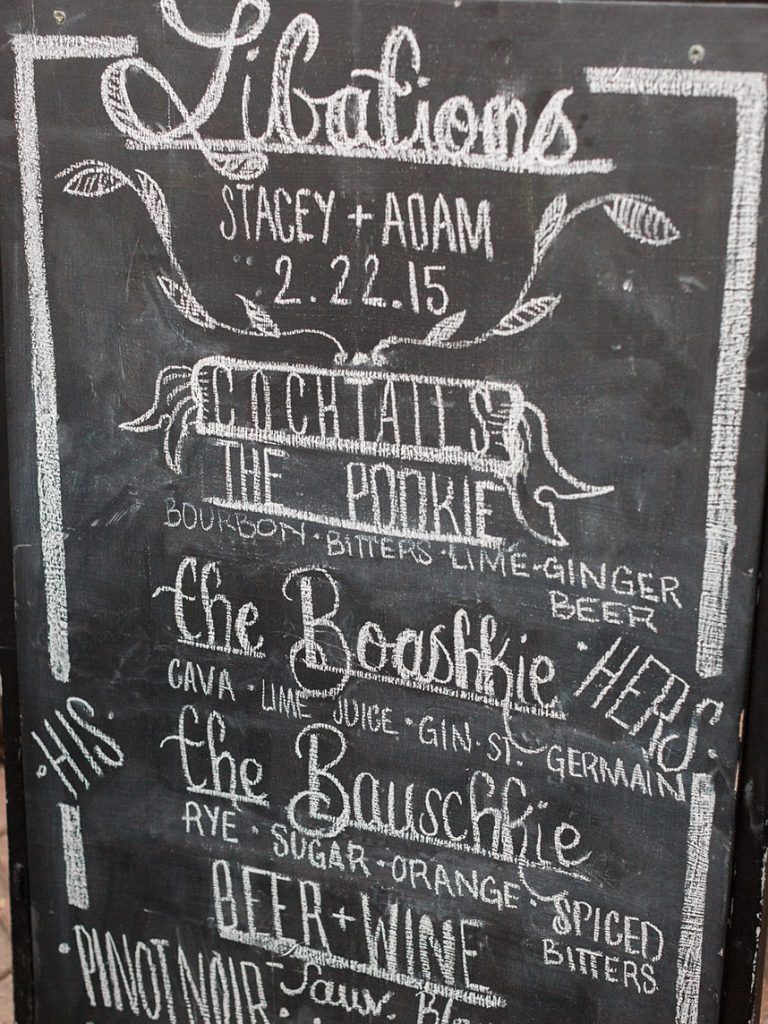 Libations
STACEY + ADAM
2.22.15
COCKTAILS
THE POOKIE
BOURBON · BITTERS · LIME · GINGER
BEER
the Boashkie
· HERS ·
CAVA · LIME JUICE · GIN · ST. GERMAIN
· HIS ·
the Bauschkie
RYE · SUGAR · ORANGE · SPICED
BITTERS
BEER + WINE
· PINOT NOIR · Sauv.